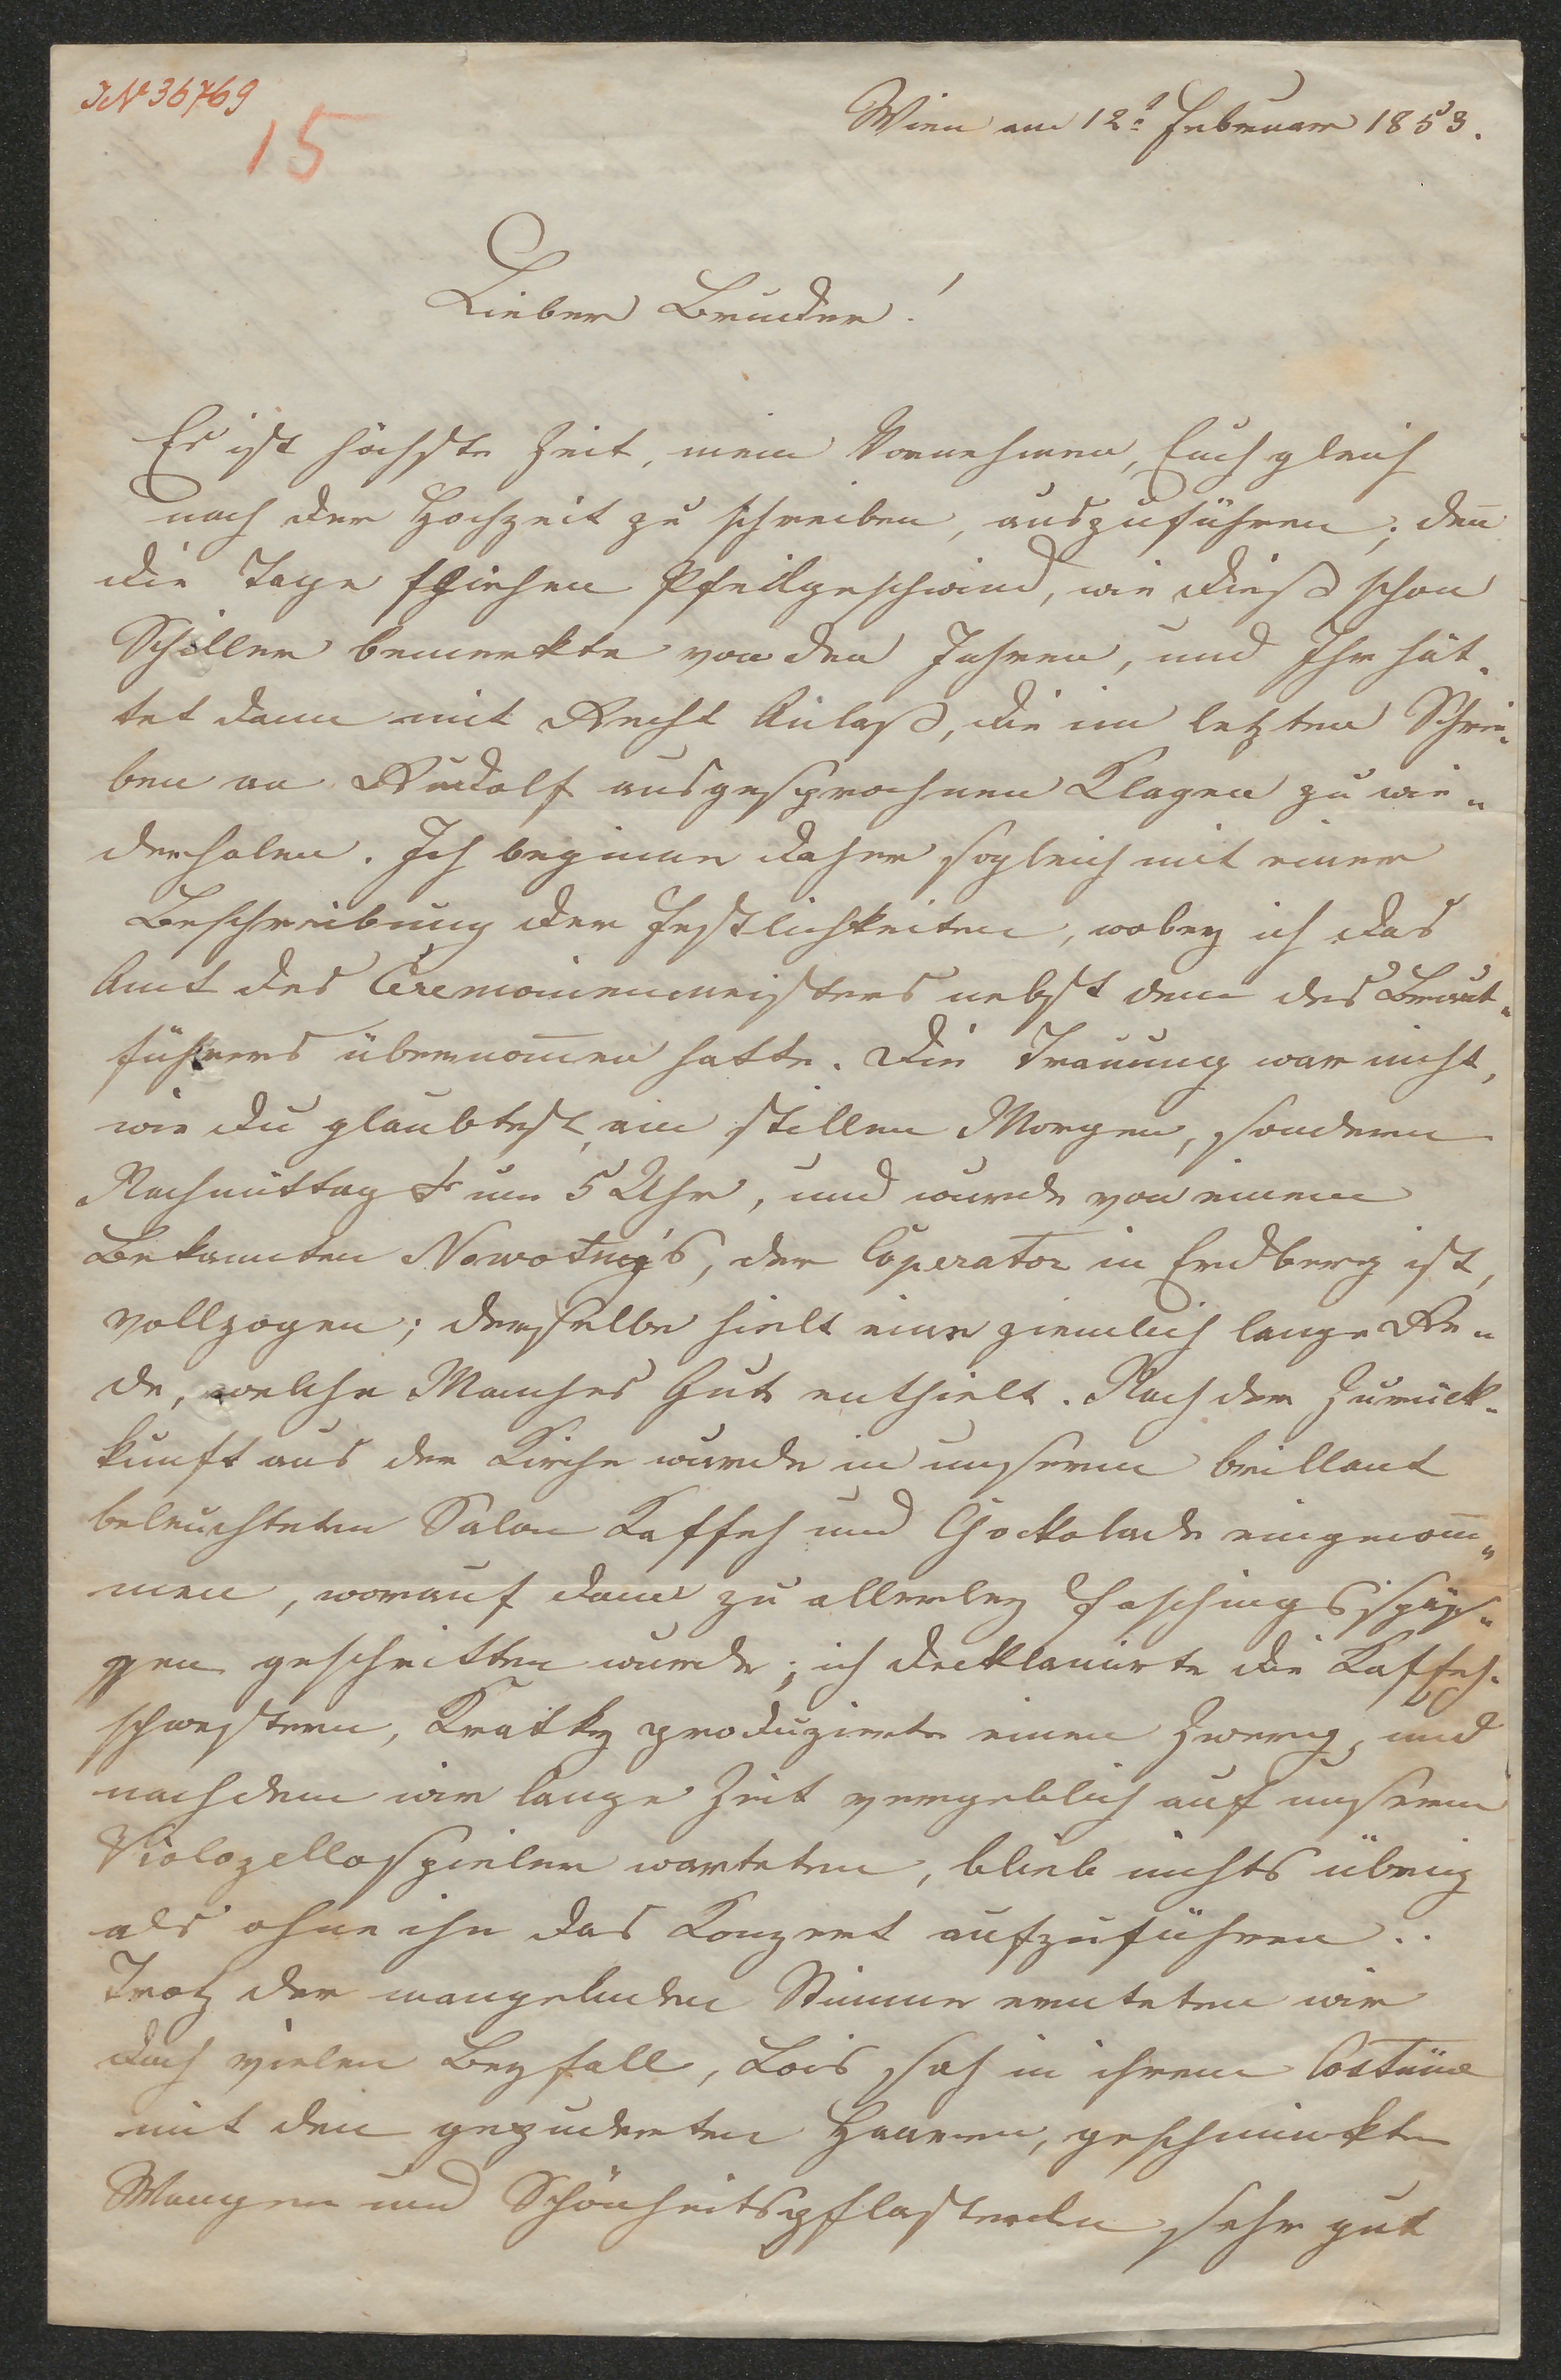 JN 36769
15
Wien am 12t Februar 1853.
Lieber Bruder!
Es ist höchste Zeit, mein Vornehmen, Euch gleich
nach der Hochzeit zu schreiben, auszuführen; deñ
die Tage fliehen pfeilgeschwind, wie dieß schon
Schiller bemerkte von den Jahren, und Ihr hät-
tet dann mit Recht Anlaß, die im letzten Schrei-
ben an Rudolf ausgesprochnen Klagen zu wie-
derholen. Ich beginne daher sogleich mit einer
Beschreibung der Festlichkeiten, wobey ich das
Amt des Ceremonienmeisters nebst dem des Braut-
führers übernom̄en hatte. Die Trauung war nicht,
wie du glaubtest, am stillen Morgen, sondern
Nachmittag um 5 Uhr, und wurde von einem
Bekannten Nowotny's, der Coperator in Erdberg ist,
vollzogen; derselbe hielt eine ziemlich lange Re-
de, welche Manches Gute enthielt. Nach der Zurück-
kunft aus der Kirche wurde in unserem brillant
beleuchteten Salon Kaffeh und Chockolade eingenom̄-
men, worauf dann zu allerley Faschingsspäs-
sen geschritten wurde; ich decklamirte die Kaffeh-
schwestern, Kratky produzierte einen Zwerg, und
nachdem wir lange Zeit vergeblich auf unseren
Violozellospieler warteten, blieb nichts übrig
als ohne ihn das Konzert aufzuführen..
Trotz der mangelnden Stimme ernteten wir
doch vielen Beyfall, Lois sah in ihrem Costüme
mit den gepuderten Haaren, geschminkten
Wangen und Schönheitspflasterln sehr gut